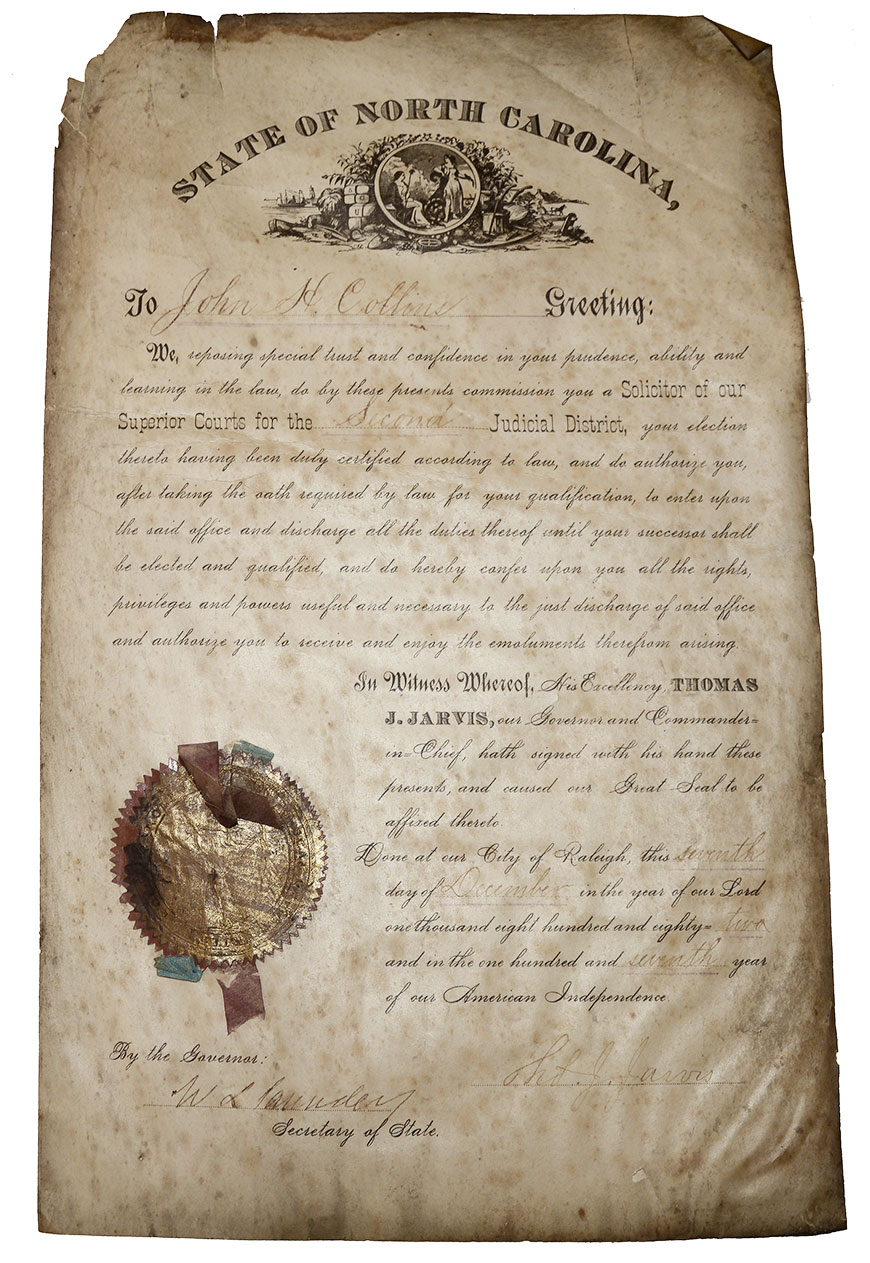 STATE OF NORTH CAROLINA,
To John H. Collins Greeting:
We, reposing special trust and confidence in your prudence, ability and
learning in the law, do by these presents commission you a Solicitor of our
Superior Courts for the Second Judicial District, your election
thereto having been duly certified according to law, and do authorize you,
after taking the oath required by law for your qualification, to enter upon
the said office and discharge all the duties thereof until your successor shall
be elected and qualified, and do hereby confer upon you all the rights,
privileges and powers useful and necessary to the just discharge of said office
and authorize you to receive and enjoy the emoluments therefrom arising.
In Witness Whereof, His Excellency, THOMAS
J. JARVIS, our Governor and Commander=
in=Chief, hath signed with his hand these
presents, and caused our Great Seal to be
affixed thereto.
Done at our City of Raleigh, this seventh
day of December in the year of our Lord
one thousand eight hundred and eighty= two
and in the one hundred and seventh year
of our American Independence.
By the Governor:
Tho. J. Jarvis
W L Saunders
Secretary of State.